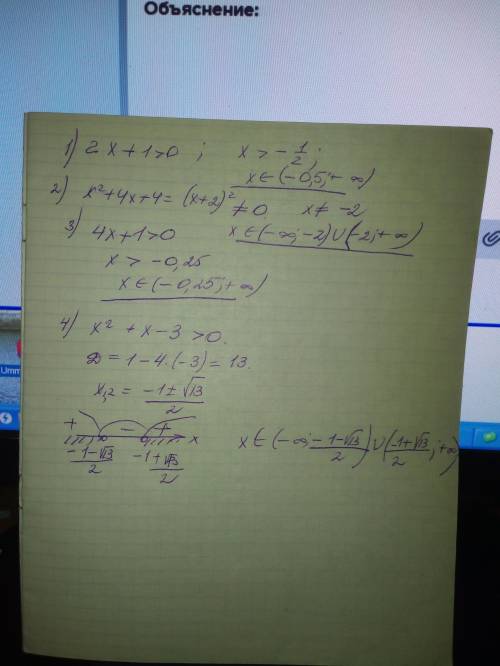 Объяснение:
1) 2x+1>0 ; x > -1/2 ;
x ∈ (-0,5; +∞)
2) x²+4x+4 = (x+2)² ≠ 0 x ≠ -2
x ∈ (-∞; -2) ∪ (-2; +∞)
3) 4x+1>0
x > -0,25
x ∈ (-0,25; +∞)
4) x² + x - 3 > 0.
D = 1 - 4·(-3) = 13.
x1,2 = (-1±√13)/2
+ - + x
(-1-√13)/2 (-1+√13)/2
x ∈ (-∞; (-1-√13)/2) ∪ ((-1+√13)/2; +∞)
Umm